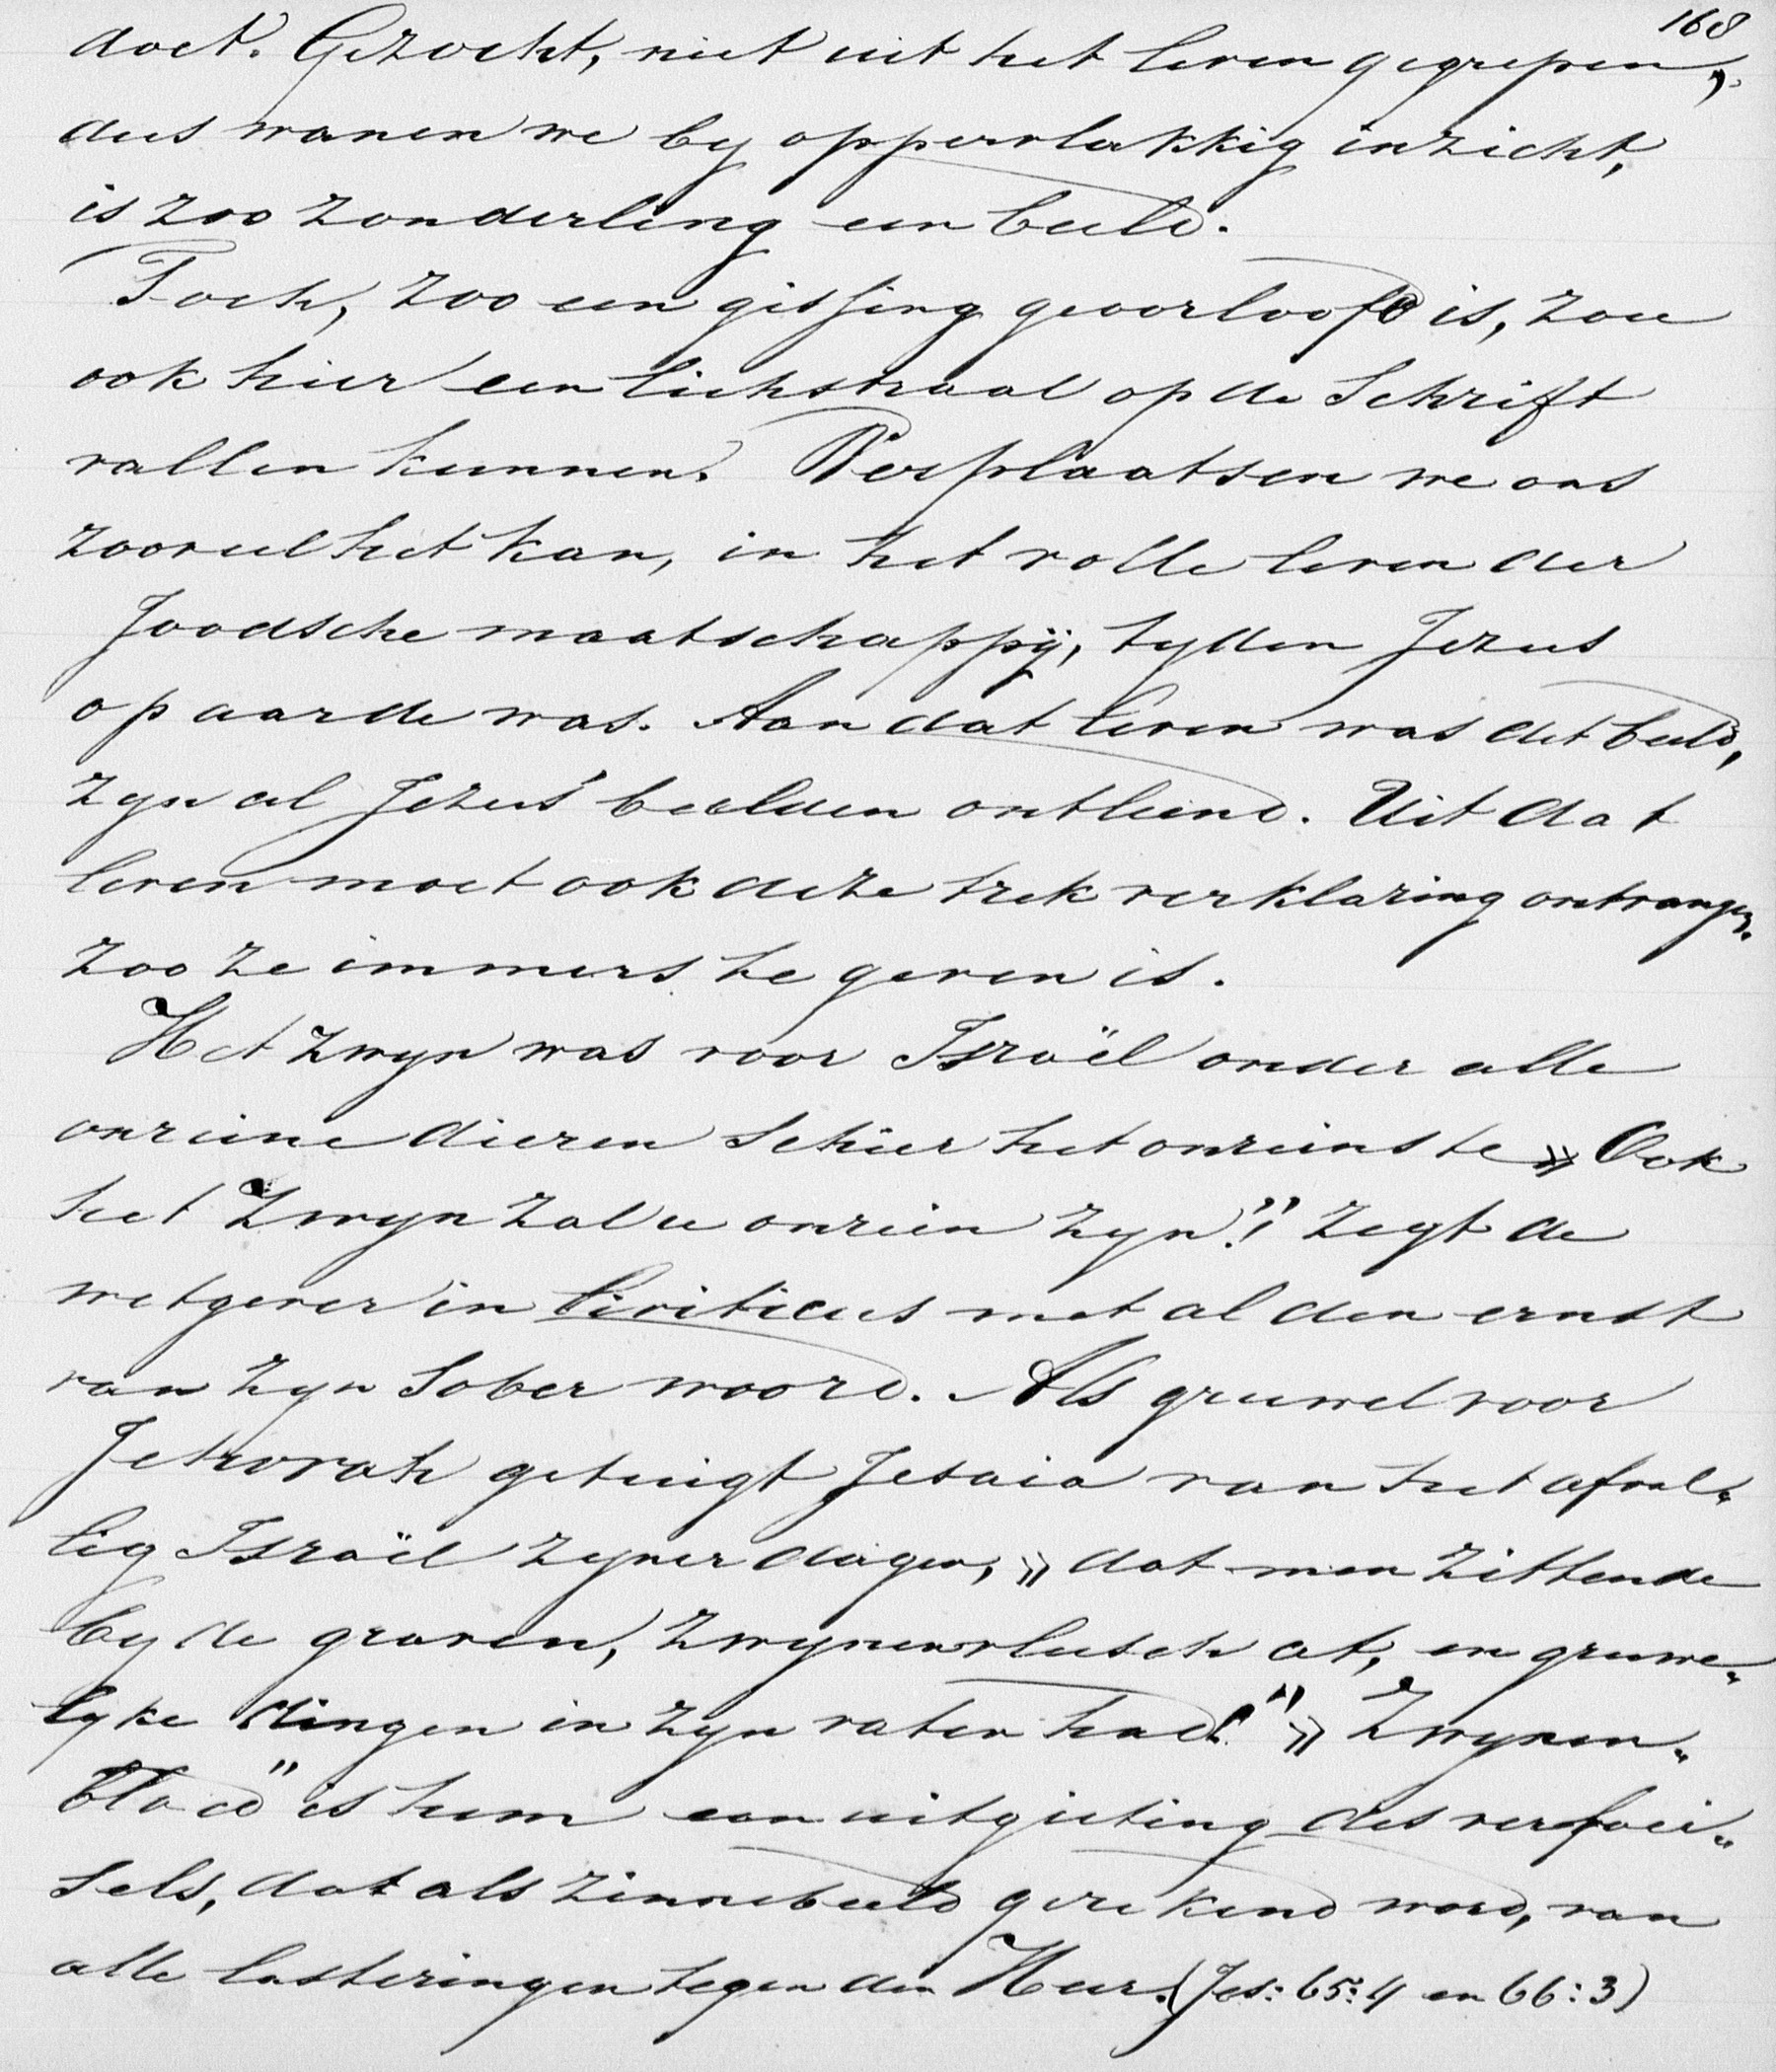 168
doet. Gezocht, niet uit het leven gegrepen,
dus wanen we by oppervlakkig inzicht,
is zoo zonderling een beeld.
Toch, zoo een gissing geoorloofd is, zou
ook hier een lichstraal op de Schrift
vallen kunnen. Verplaatsen we ons
zooveel het kan, in het volle leven der
Joodsche maatschappij, tyden Jezus
op aarde was. Aan dat leven was dit beeld,
zyn al Jezus' beelden ontleend. Uit dat
leven moet ook deze trek verklaring ontvangen.
zoo ze immers te geven is.
Het zwyn was voor Israël onder alle
onreine dieren schier het onreinste „Ook
het Zwyn zal u onrein zyn"! zegt de
wetgever in Leviticus met al den ernst
van zyn sober woord. Als gruwel voor
Jehovah getuigt Jesaia van het afval„
lig Israël zyner dagen, „dat men zittende
by de graven, zwynenvleesch at, en gruwe„
lyke dingen in zyn vaten had." „Zwynen„
bloed" is hem een uitgieting des verfoei„
sels, dat als zinnebeeld gerekend word, van
alle lasteringen tegen den Heer. (Jes: 65:4 en 66:3)